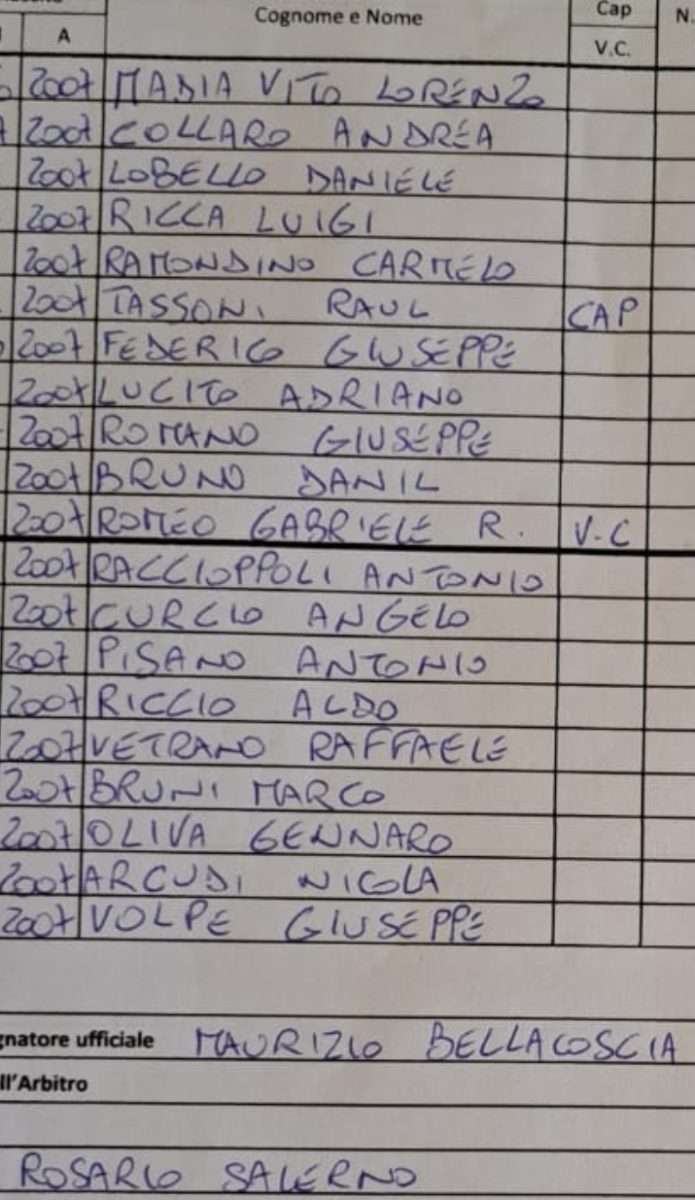 A Cognome e Nome Cap N.
V.C.
2007 MADIA VITO LORENZO
2007 COLLARO ANDREA
2007 LOBELLO DANIELE
2007 RICCA LUIGI
2007 RAMONDINO CARMELO
2007 TASSONI RAUL CAP
2007 FEDERICO GIUSEPPE
2007 LUCITO ADRIANO
2007 ROMANO GIUSEPPE
2007 BRUNO DANIL
2007 ROMEO GABRIELE R. V.C
2007 RACCIOPPOLI ANTONIO
2007 CURCIO ANGELO
2007 PISANO ANTONIO
2007 RICCIO ALDO
2007 VETRANO RAFFAELE
2007 BRUNI MARCO
2007 OLIVA GENNARO
2007 ARCUDI NICOLA
2007 VOLPE GIUSEPPE
gnatore ufficiale MAURIZIO BELLACOSCIA
ll'Arbitro
ROSARIO SALERNO